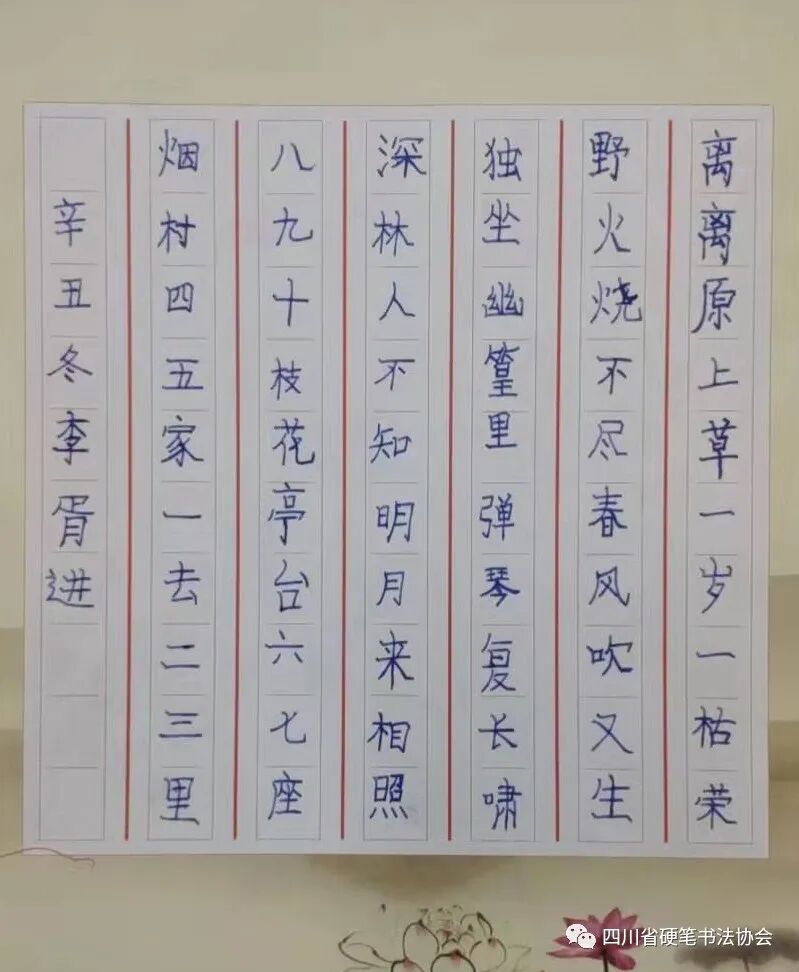 离离原上草一岁一枯荣
野火烧不尽春风吹又生
独坐幽篁里弹琴复长啸
深林人不知明月来相照
八九十枝花亭台六七座
烟村四五家一去二三里
辛丑冬李胥进
四川省硬笔书法协会